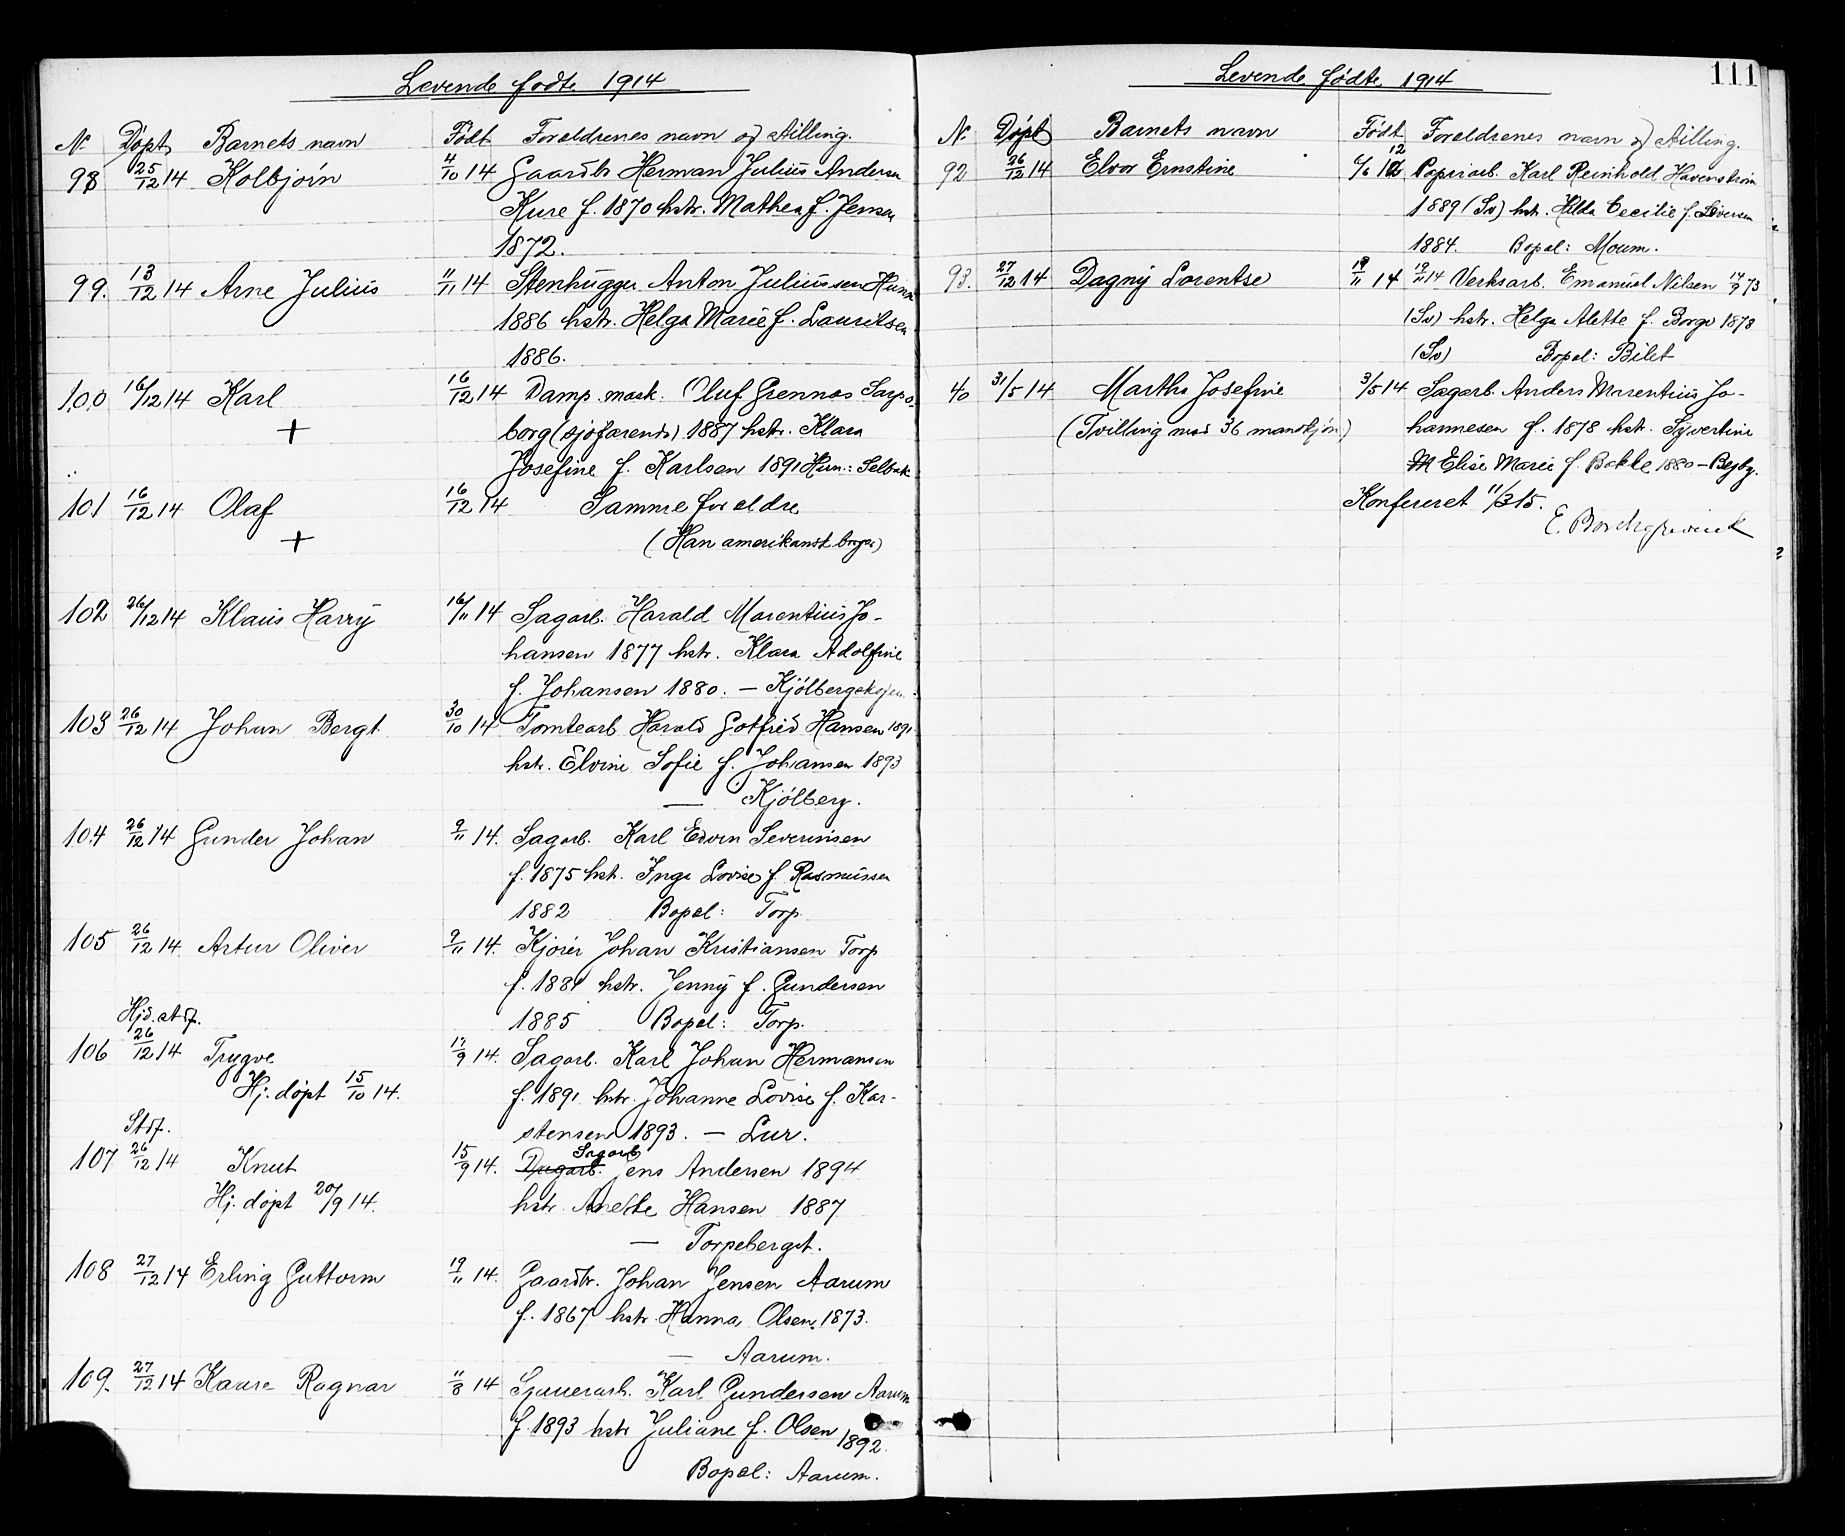 Levende fødte 1914
N. Døpt Barnets navn Født Foreldrenes navn og stilling.
98 25/12 14 Kolbjørn 4/10 14 Gaardbr Herman Julius Andersen
Kure f. 1870 hstr. Mathea f. Jensen
1872.
99. 13/12 14 Arne Julius 11/11 14 Stenhugger Anton Juliussen
1886 hstr. Helga Marie f. Lauritsen
1886.
100 16/12 14 Karl 16/12 14 Damp. mask. Oluf Grennas Sarps-
+ borg (sjøfarende) 1887 hstr. Klara
Josefine f. Karlsen 1891 Hun: Selbak
101 16/12 14 Olaf 16/12 14 Samme foreldre
+ (Han amerikansk borger)
102 26/12 14 Klaus Harry 16/11 14 Sagarb. Harald Marentius Jo-
hansen 1877 hstr. Klara Adolfine
f. Johansen 1880. — Kjølbergskogen.
103 26/12 14 Johan Bergt. 30/10 14 Tomtearb Harald Gotfred Hansen 1891
hstr. Elvine Sofie f. Johansen 1893
— Kjølberg.
104 26/12 14 Gunder Johan 9/11 14. Sagarb. Karl Edvin Severinsen
f. 1875 hstr. Inga Lovise f. Rasmussen
1882 Bopel: Torp
105 26/12 14 Artur Oliver 9/11 14. Kjører Johan Kristiansen Torp
f. 1881 hstr. Jenny f. Gundersen
1885 Bopel: Torp.
Hjd. stf.
106 26/12 14 Trygve 17/9 14. Sagarb. Karl Johan Hermansen
Hj. døpt 15/10 14. f. 1891 hstr. Johanne Lovise f. Kar-
stensen 1893. — Lur.
Stf. Sagarb
107 26/12 14 Knut 15/9 14. Dagarb. Jens Andersen 1894
Hj. døpt 20/9 14. hstr. Anette Hansen 1887
— Torpeberget.
108 27/12 14 Erling Guttorm 19/11 14. Gaardbr. Johan Jensen Aarum
f. 1867 hstr. Hanna Olsen 1873.
— Aarum.
109. 27/12 14 Kaare Ragnar 11/8 14 Karl Gundersen Aarum
f. 1893 hstr Juliane f. Olsen 1892.
Bopel: Aarum.
111
Levende fødte 1914
N. Døpt Barnets navn Født Foreldrenes navn og stilling.
12
92 26/12 14 Elvor Ernstine 6/6 Papirarb. Karl Reinhold Havenstrøm
1889 (Sv) hstr. Hilda Cecilie f. Siversen
1884. Bopel: Moum.
93. 27/12 14 Dagny Lorentse 19/11 14 19/11 14 Verksarb. Emanuel Nilsen 14/9 73
(Sv) hstr. Helga Alette f. Borge 1878
(Sv) Bopel: Bilet
40 31/5 14 Martha Josefine 3/5 14 Sagarb. Anders Marentius Jo-
(Tvilling med 36 mandkjøn) hannesen f. 1878 hstr. Syvertine
M Elise Marie f. Bakke 1880 — Begby.
Konfereret 11/3 15.
E. Borchgrevink